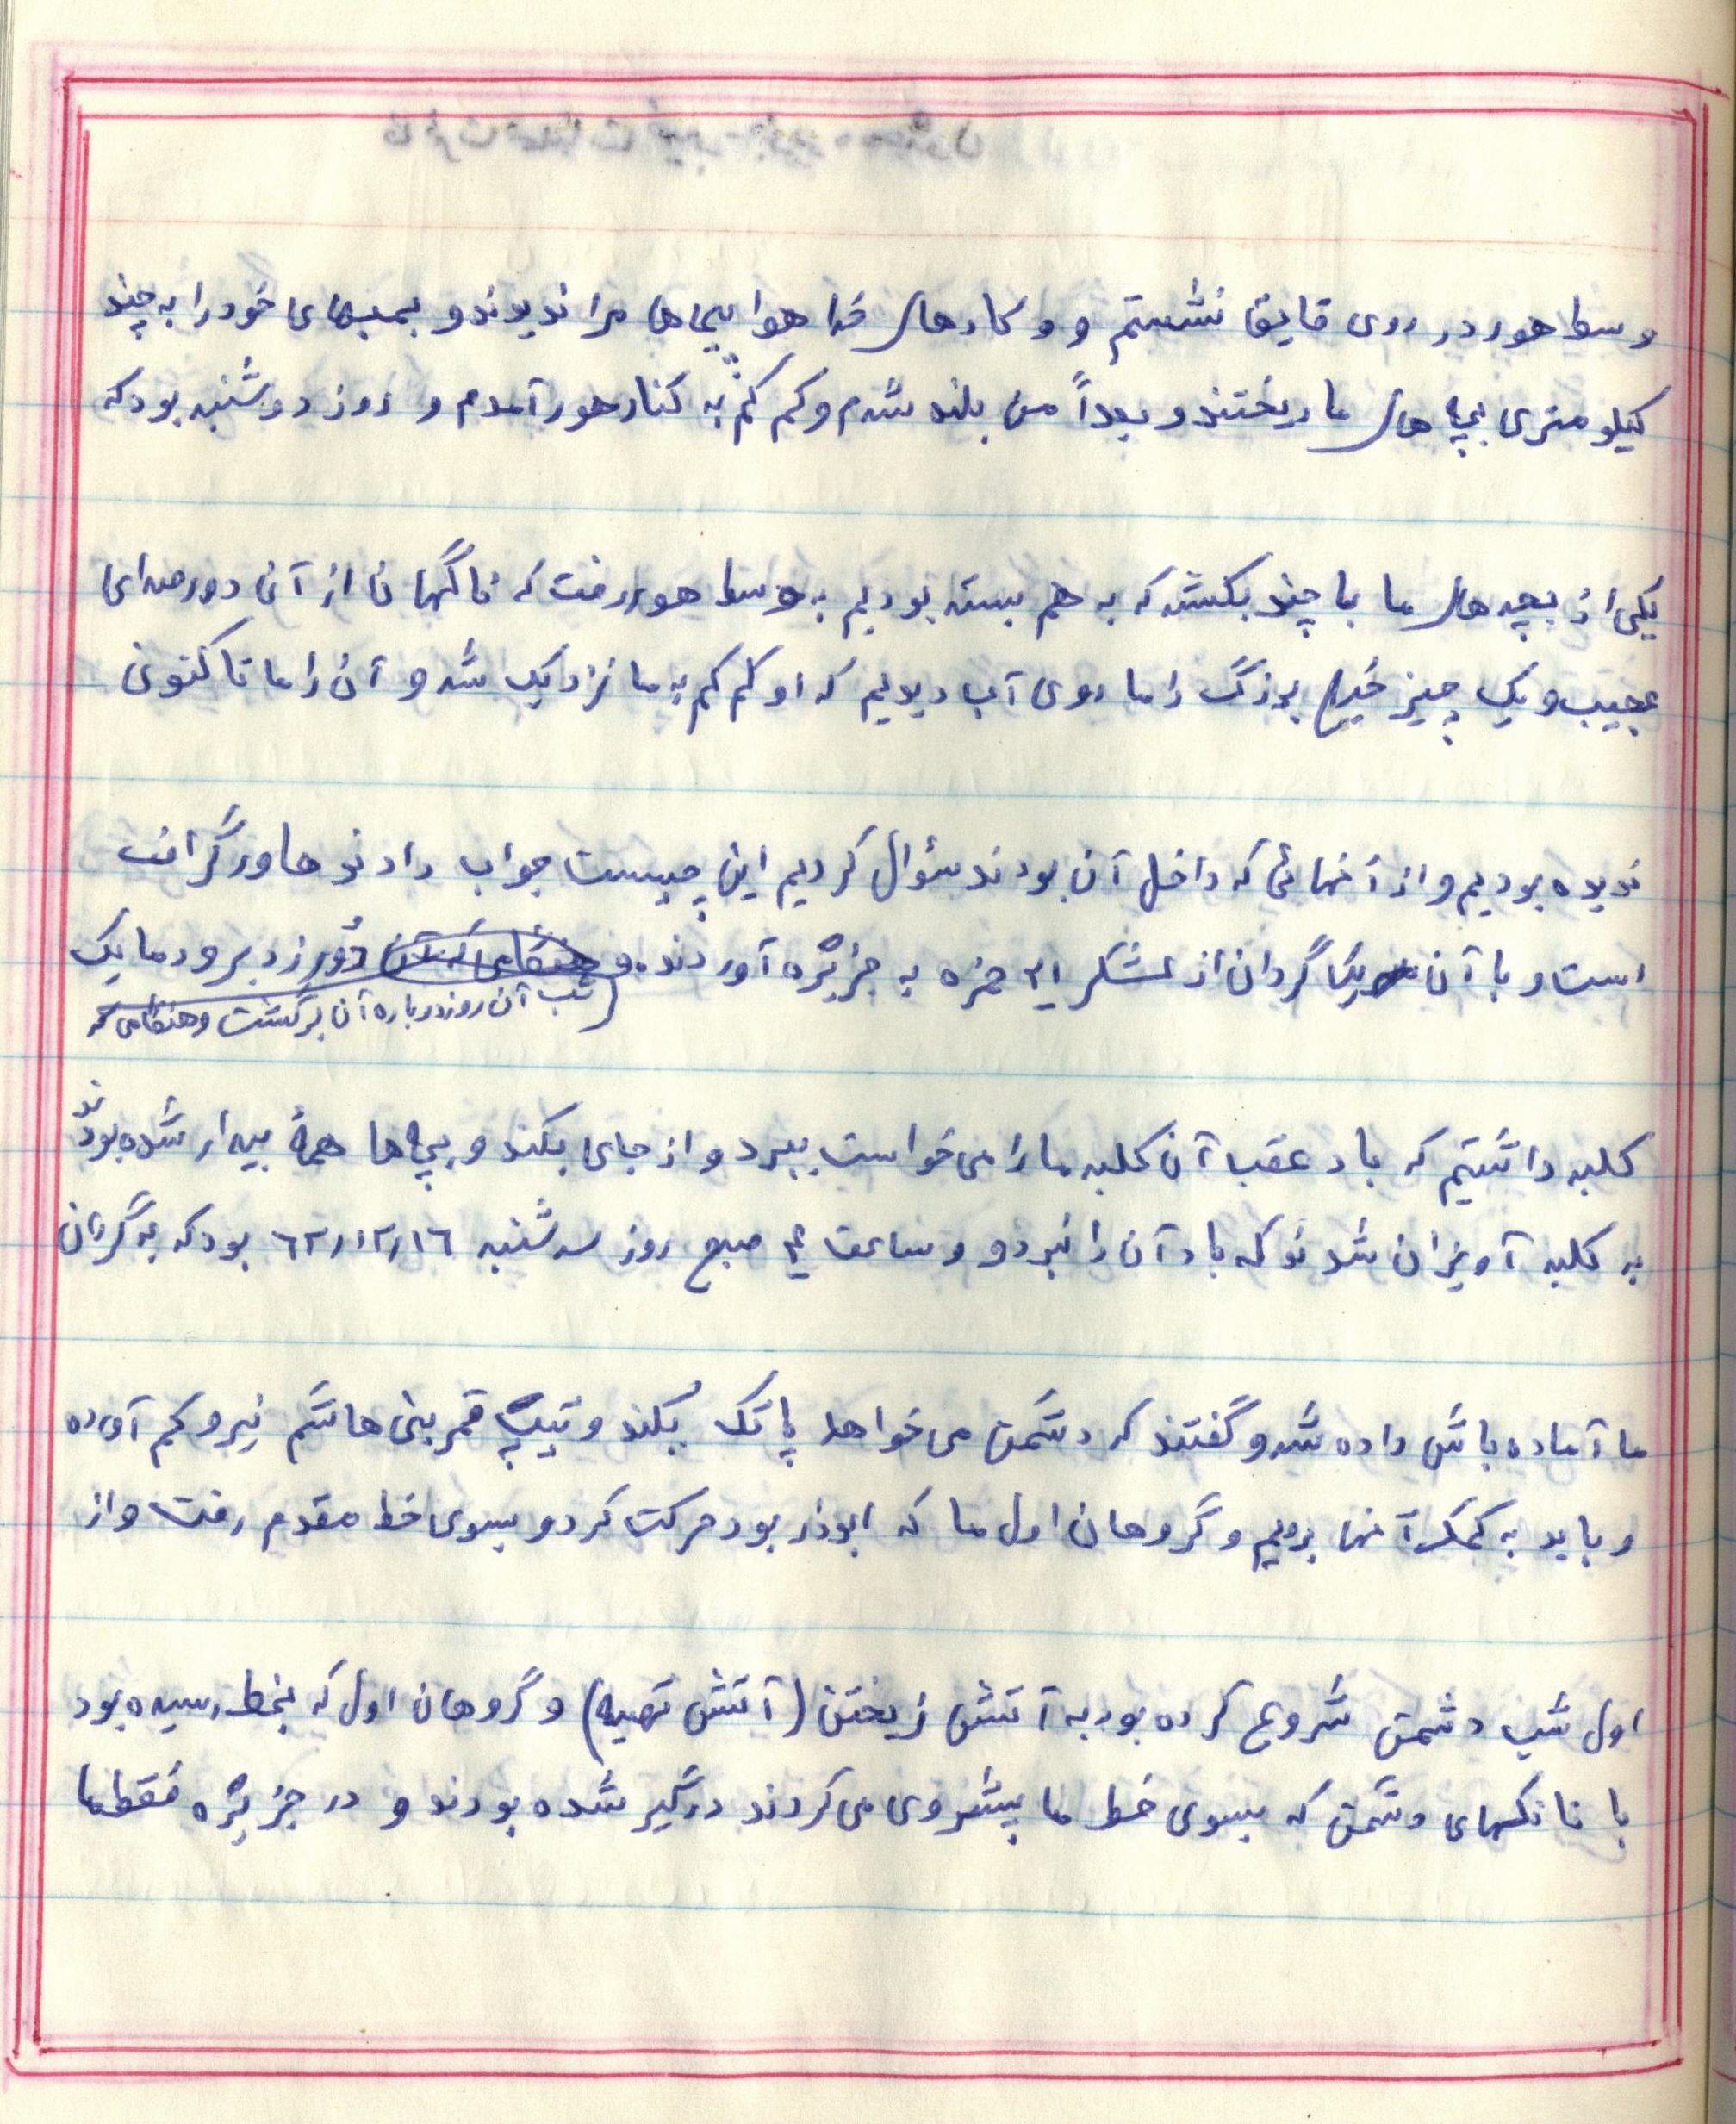 وسط هور در روی قایق نشستم و و کارهای خدا هواپیماها مرا ندیدند و بمبهای خود را به چند
کیلومتری بچه های ما ریختند و بعداً من بلند شدم و کم کم به کنار هور آمدم و روز دوشنبه بود که
یکی از بچه های ما با چند بکشه که به هم بسته بودیم به وسط هور رفت که ناگهان از آن دور صدای
عجیب و یک چیز خیلی بزرگ را ما روی آب دیدیم که او کم کم به ما نزدیک شد و آن را ما تا کنون
ندیده بودیم و از آنهائی که داخل آن بودند سئوال کردیم این چیست جواب دادند هاورگرافت
است و با آن یک گردان از لشکر ۳۱ حمزه به جزیره آوردند و دور زد برود ما یک
شب آن روز دوباره آن برگشت و هنگامی که
کلبه داشتیم که باد عقب آن کلبه ما را می خواست ببرد و از جای بکند و بچه ها همهٔ بیدار شده بودند
به کلبه آویزان شدند که باد آن را نبرد و و ساعت ۴ صبح روز سه شنبه ٦٢/١٢/١٦ بود که به گردان
ما آماده باش داده شد و گفتند که دشمن می خواهد پاتک بکند و تیپ قمر بنی هاشم نیرو کم آورده
و باید به کمک آنها برویم و گروهان اول ما که ابوذر بود حرکت کرد و بسوی خط مقدم رفت و از
اول شب دشمن شروع کرده بود به آتش ریختن (آتش تهیه) و گروهان اول که بخط رسیده بود
با تانکهای دشمن که بسوی خط ما پیشروی می کردند درگیر شده بودند و در جزیره فقط ما